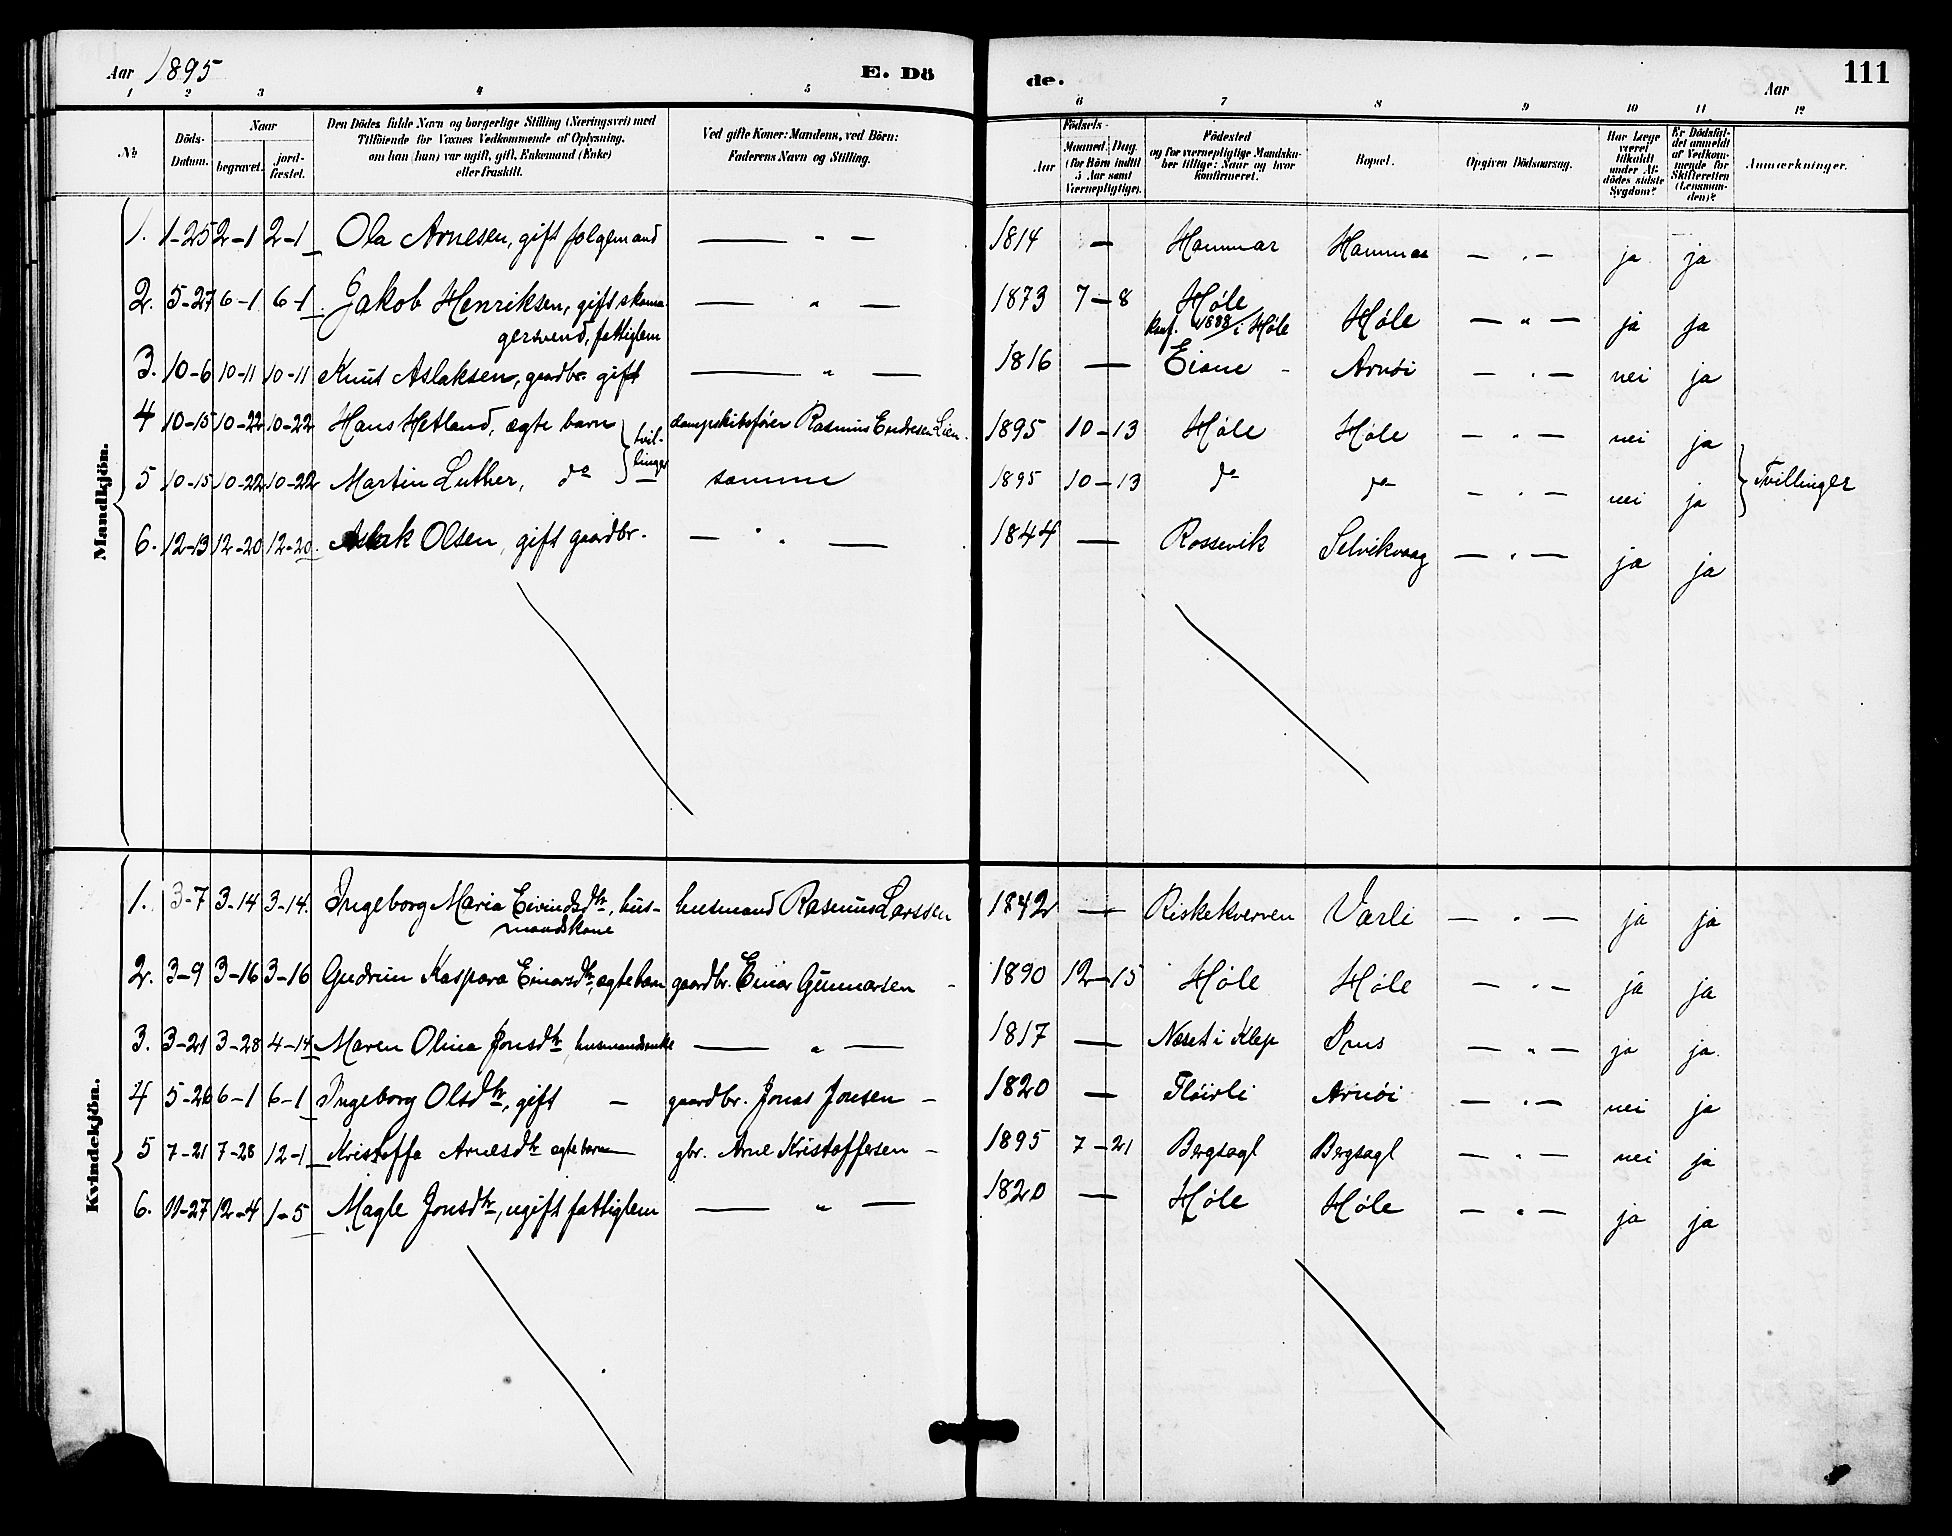 Aar 1895 E. Dö de. Aar 111
1 2 3 4 5 6 7 8 9 10 11 12
No
Döds-Datum.
Naar
begravet.
jord-fæstet.
Den Dödes fulde Navn og borgerlige Stilling (Næringsvei) med
Tilföiende for Voxnes Vedkommende af Oplysning,
om han (hun) var ugift, gift, Enkemand (Enke)
eller fraskilt.
Ved gifte Koner: Mandens, ved Börn:
Faderens Navn og Stilling.
Födsels-
Aar
Maaned Dag
(for Börn indtil
5 Aar samt
Værnepligtige).
Födested
og for værnepligtige Mandska-
ber tillige: Naar og hvor
konfirmeret.
Bopæl.
Opgiven Dödsaarsag.
Har Læge
været
tilkaldt
under Af-
dödes sidste
Sygdom?
Er Dödsfal-
det anmeldt
af Vedkom-
mende for
Skifteretten
(Lensman-
den)?
Anmærkninger.
Mandkjön.
1. 1-25 2-1 2-1 Ola Arnesen, gift folgemand — " — 1814 — Hammar Hammar — " — ja ja
2. 5-27 6-1 6-1 Jakob Henriksen, gift skoma- — " — 1873 7-8 Høle Høle — " — ja ja
gersvend, fattiglem Konf. 1888 i Høle
3. 10-6 10-11 10-11 Knut Aslaksen, gaardbr. gift — " — 1816 — Eiane - Arnøi — " — nei ja
4 10-15 10-22 10-22 Hans Hetland, ægte barn } tvil- dampskibsfører Rasmus Endresen Lien. 1895 10-13 Høle Høle — " — nei ja
5 10-15 10-22 10-22 Martin Luther, do } linger samme 1895 10-13 do do — " — nei ja } Tvillinger
6. 12-13 12-20 12-20. Aslak Olsen, gift gaardbr. — " — 1844 — Rossevik Selvikvaag — " — ja ja
Kvindekjön.
1. 3-7 3-14 3-14. Ingeborg Maria Eivindsdtr, hus- husmand Rasmus Larssen 1842 — Riskekverven Varli — " — ja ja
mandskone
2. 3-9 3-16 3-16 Gudrun Kaspara Einarsdtr, ægte barn gaardbr. Einar Gunnarsen - 1890 12-15 Høle Høle — " — ja ja
3. 3-21 3-28 4-14 Maren Olina Jonsdtr, husmandsenke — " — 1817 — Næset i Klep — " — ja ja.
4 5-26 6-1 6-1 Ingeborg Olsdtr, gift - gaardbr. Jonas Jonsen - 1820 — Fløirli Arnøi — " — nei ja
5 7-21 7-28 12-1 Kristoffa Arnesdtr ægte barn gbr. Arne Kristoffersen - 1895 7-21 Bergsagl Bergsagl — " — nei ja
6. 11-27 12-4 1-5 Magle Jonsdtr, ugift fattiglem — " — 1820 — Høle Høle — " — ja ja